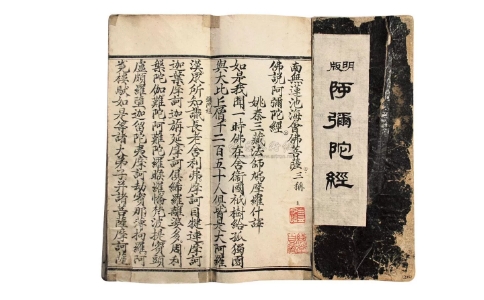 明版
阿彌陀經
南無蓮池海會佛菩薩 三稱
佛說阿彌陀經
姚秦三藏法師鳩摩羅什譯
如是我聞一時佛在舍衛國祇樹給孤獨園
與大比丘僧千二百五十人俱皆是大阿羅
漢衆所知識長老舍利弗摩訶目揵連摩訶
迦葉摩訶迦旃延摩訶俱絺羅離婆多周利
槃陀伽難陀阿難陀羅睺羅憍梵波提賓頭
盧頗羅墮迦留陀夷摩訶劫賓那薄拘羅阿
㝹樓馱如是等諸大弟子并諸菩薩摩訶薩